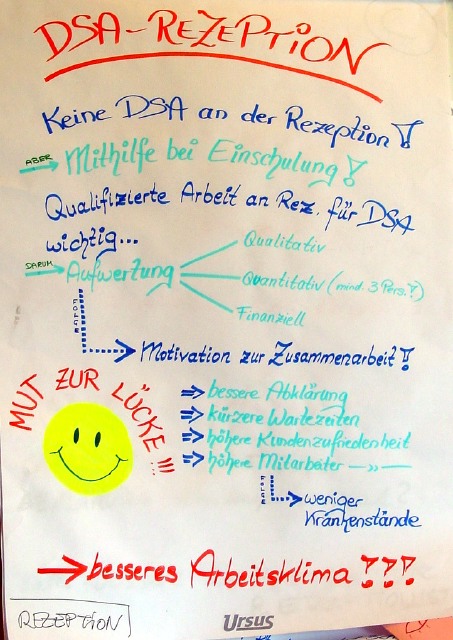 DSA-REZEPTION
Keine DSA an der Rezeption!
ABER
Mithilfe bei Einschulung!
Qualifizierte Arbeit an Rez. für DSA
wichtig...
Qualitativ
DARUM
Aufwertung
Quantitativ (mind. 3 Pers.?)
Finanziell
FOLGE
Motivation zur Zusammenarbeit!
MUT ZUR LÜCKE!!!
bessere Abklärung
kürzere Wartezeiten
höhere Kundenzufriedenheit
höhere Mitarbeiter —»—
FOLGE
weniger
Krankenstände
besseres Arbeitsklima!!!
REZEPTION
Ursus